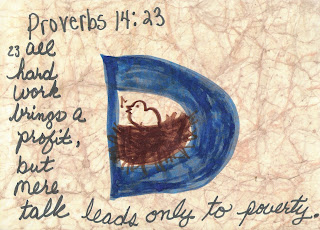 Proverbs 14:23
23 all
hard
work
brings a
profit,
but
mere
talk leads only to poverty.